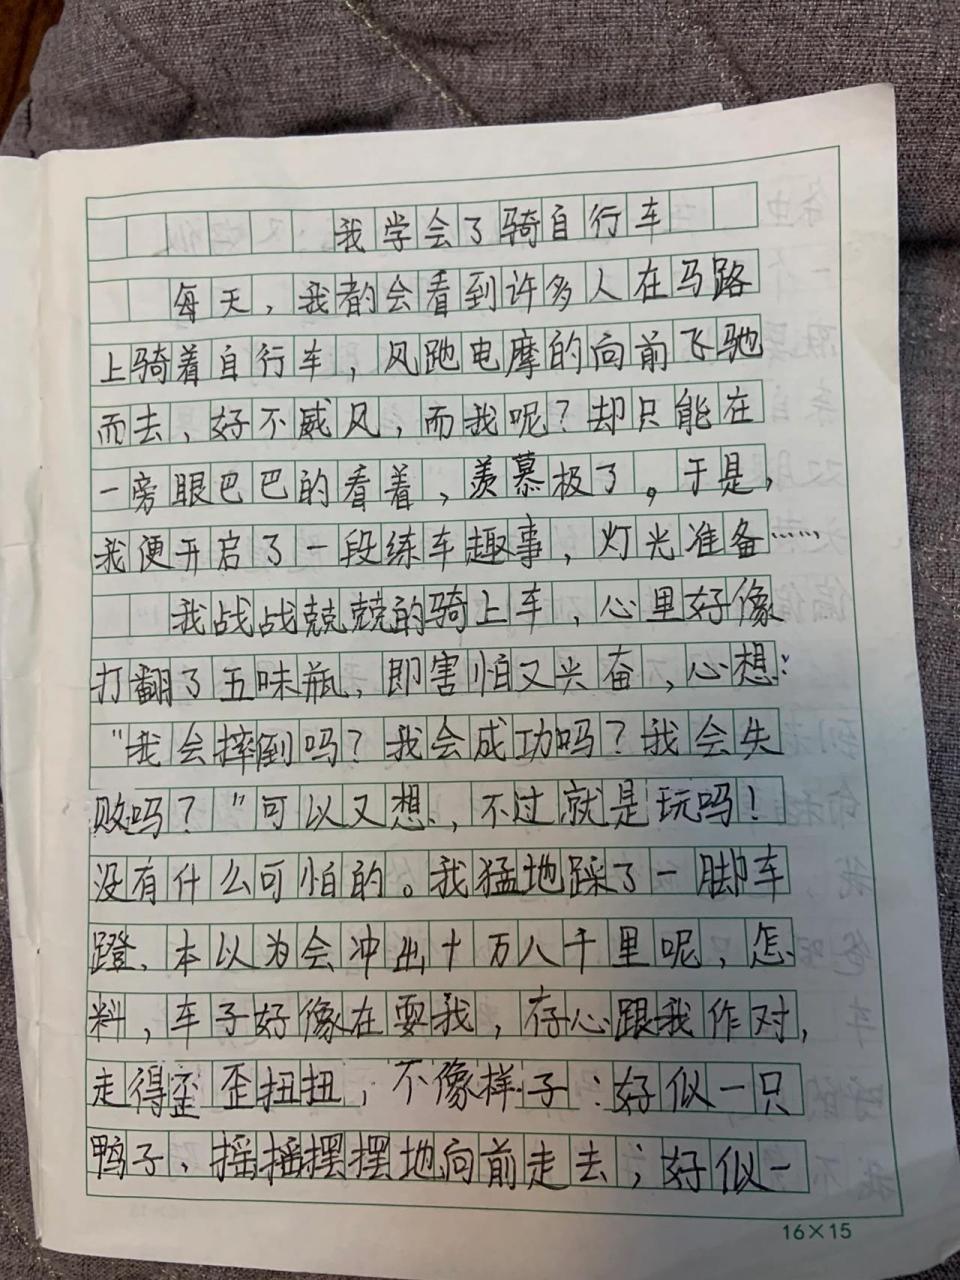 我学会了骑自行车
每天，我都会看到许多人在马路
上骑着自行车，风跑电摩的向前飞驰
而去，好不威风，而我呢？却只能在
一旁眼巴巴的看着，羡慕极了。于是，
我便开启了一段练车趣事，灯光准备……
我战战兢兢的骑上车，心里好像
打翻了五味瓶，即害怕又兴奋，心想：
“我会摔倒吗？我会成功吗？我会失
败吗？”可以又想，不过就是玩吗！
没有什么可怕的。我猛地踩了一脚车
蹬、本以为会冲出十万八千里呢，怎
料，车子好像在耍我，存心跟我作对，
走得歪歪扭扭，不像样子：好似一只
鸭子、摇摇摆摆地向前走去；好似一
16×15